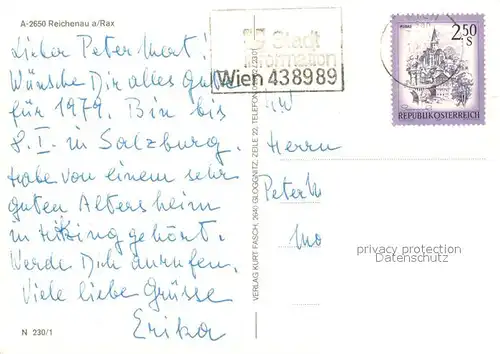 A-2650 Reichenau a/Rax
Lieber Peter Mort!
Wünsche Dir alles Gute
für 1979. Bin bis
8. I. in Salzburg.
Habe von einem sehr
guten Altersheim
in Hitzing gehört.
Werde Dich anrufen.
Viele liebe Grüsse
Erika
N 230/1
VERLAG KURT FASCH, 2640 GLOGGNITZ, ZEILE 22, TELEFON
Stadt
Information
Wien 438989
2,50
S
REPUBLIK ÖSTERREICH
Herrn
Peter M
Mo
privacy protection
Datenschutz